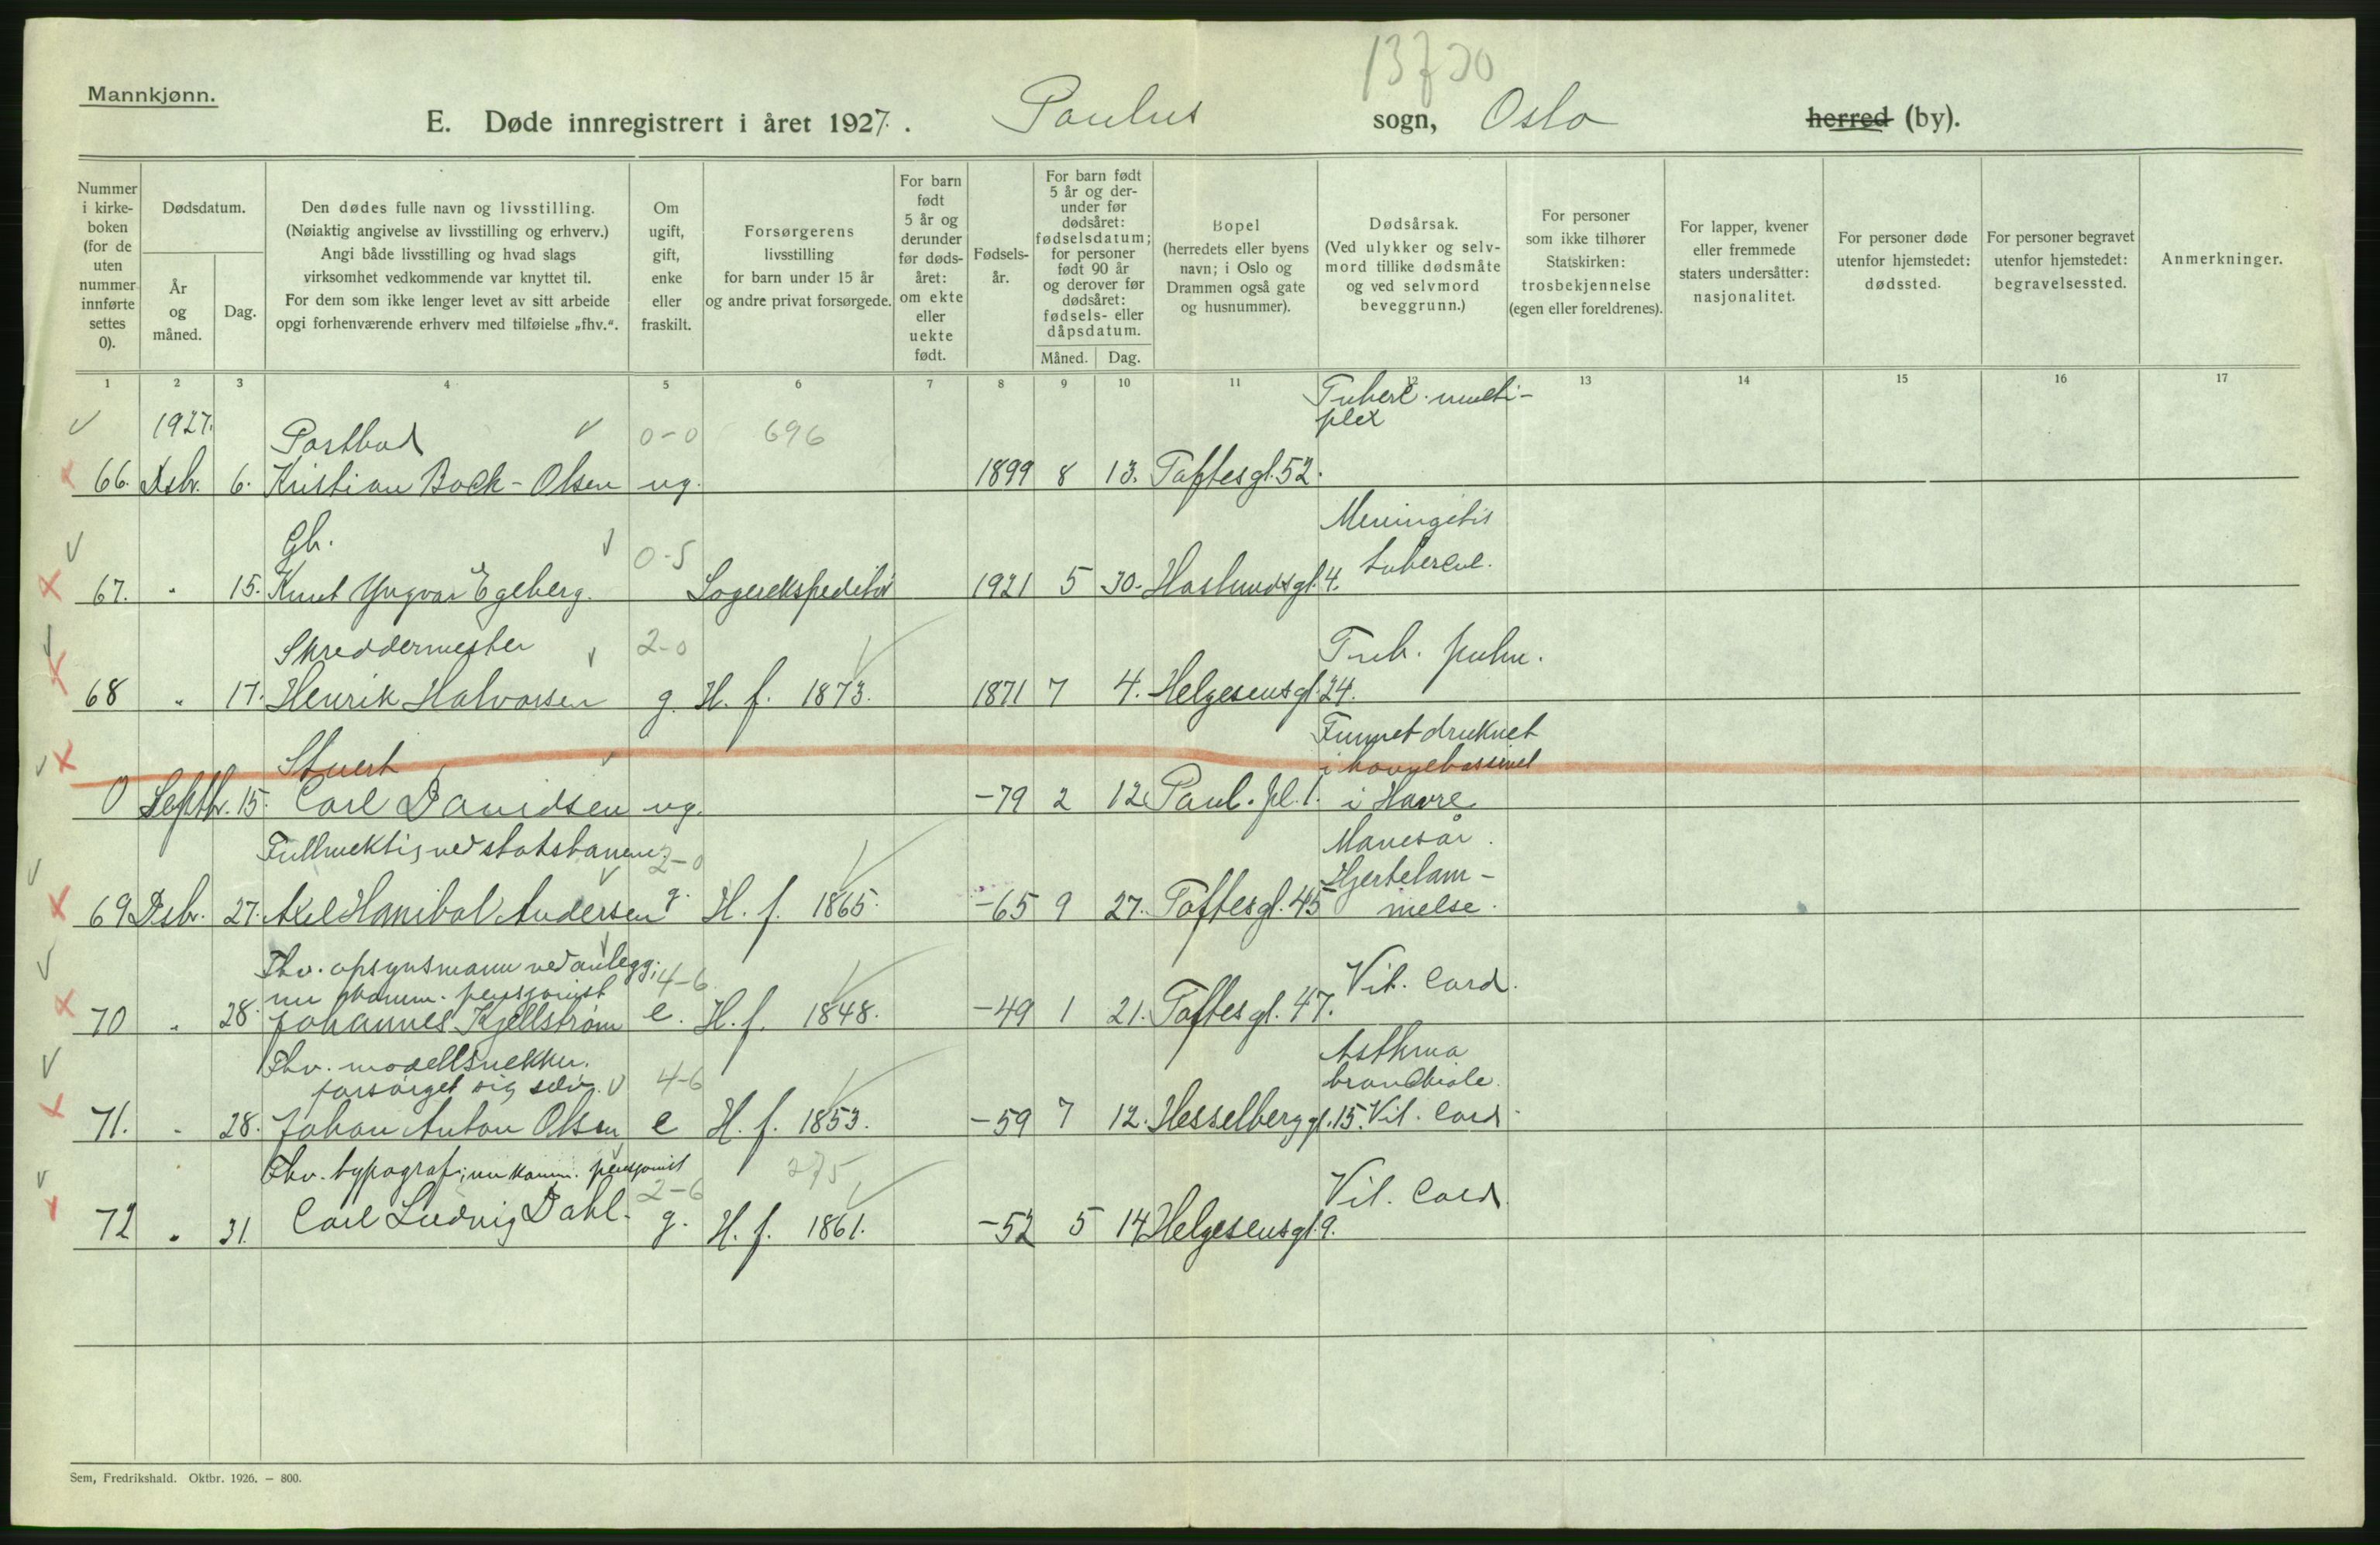 13730
Mannkjønn.
E. Døde innregistrert i året 1927. Paulus sogn, Oslo herred (by).
Nummer i kirkeboken (for de uten nummer innførte settes 0).
Dødsdatum.
År og måned.
Dag.
Den dødes fulle navn og livsstilling.
(Nøiaktig angivelse av livsstilling og erhverv.)
Angi både livsstilling og hvad slags
virksomhet vedkommende var knyttet til.
For dem som ikke lenger levet av sitt arbeide
opgi forhenværende erhverv med tilføielse „fhv.“.
Om ugift, gift, enke eller fraskilt.
Forsørgerens
livsstilling
for barn under 15 år
og andre privat forsørgede.
For barn født 5 år og derunder før dødsåret: om ekte eller uekte født.
Fødselsår.
For barn født 5 år og derunder før dødsåret: fødselsdatum; for personer født 90 år og derover før dødsåret: fødsels- eller dåpsdatum.
Måned. Dag.
Bopel
(herredets eller byens
navn; i Oslo og
Drammen også gate
og husnummer).
Dødsårsak.
(Ved ulykker og selvmord tillike dødsmåte
og ved selvmord
beveggrunn.)
For personer
som ikke tilhører
Statskirken:
trosbekjennelse
(egen eller foreldrenes).
For lapper, kvener
eller fremmede
staters undersåtter:
nasjonalitet.
For personer døde
utenfor hjemstedet:
dødssted.
For personer begravet
utenfor hjemstedet:
begravelsessted.
Anmerkninger.
1 2 3 4 5 6 7 8 9 10 11 12 13 14 15 16 17
1927. Postbud 0-0 696 Tubercl. multiplex
66. Dsbr. 6. Kristian Bock-Olsen ug. 1899 8 13. Toftesgt. 52.
Gb. 0-5 Meningitis tubercul.
67. " 15. Knut Yngvar Egeberg. Lagerekspeditør 1921 5 30. Haslundsgt. 4.
Skreddermester 2-0 Tub. pulm.
68 " 17. Henrik Halvorsen g. H. f. 1873. 1871 7 4. Helgesensgt. 24.
Stuert Funnet druknet i havnebassinet
0 Septbr. 15. Carl Davidsen ug. -79 2 12 Paul. pl. 1. i Havre
Fullmektig ved statsbanene. 2-0 Mavesår. Hjertelammelse.
69 Dsbr. 27. Axel Hanibal Andersen g. H. f. 1865. -65 9 27. Toftesgt. 45
Fhv. opsynsmann ved anlegg; 4-6 Vit. Cord.
nu komm. pensjonist
70 " 28. Johannes Kjellstrøm e. H. f. 1848. -49 1 21. Toftesgt. 47.
Fhv. modellsnekker. Asthma
forsørget sig selv. 4-6 bronchiale.
71. " 28. Johan Anton Olsen e H. f. 1853. -59 7 12. Hesselberggt. 15. Vit. Cord.
Fhv. typograf; nu komm. pensjonist 275 2-6 Vit. Cord.
72 " 31. Carl Ludvig Dahl. g. H. f. 1861. -52 5 14 Helgesensgt. 9.
Sem, Fredrikshald. Oktbr. 1926. – 800.